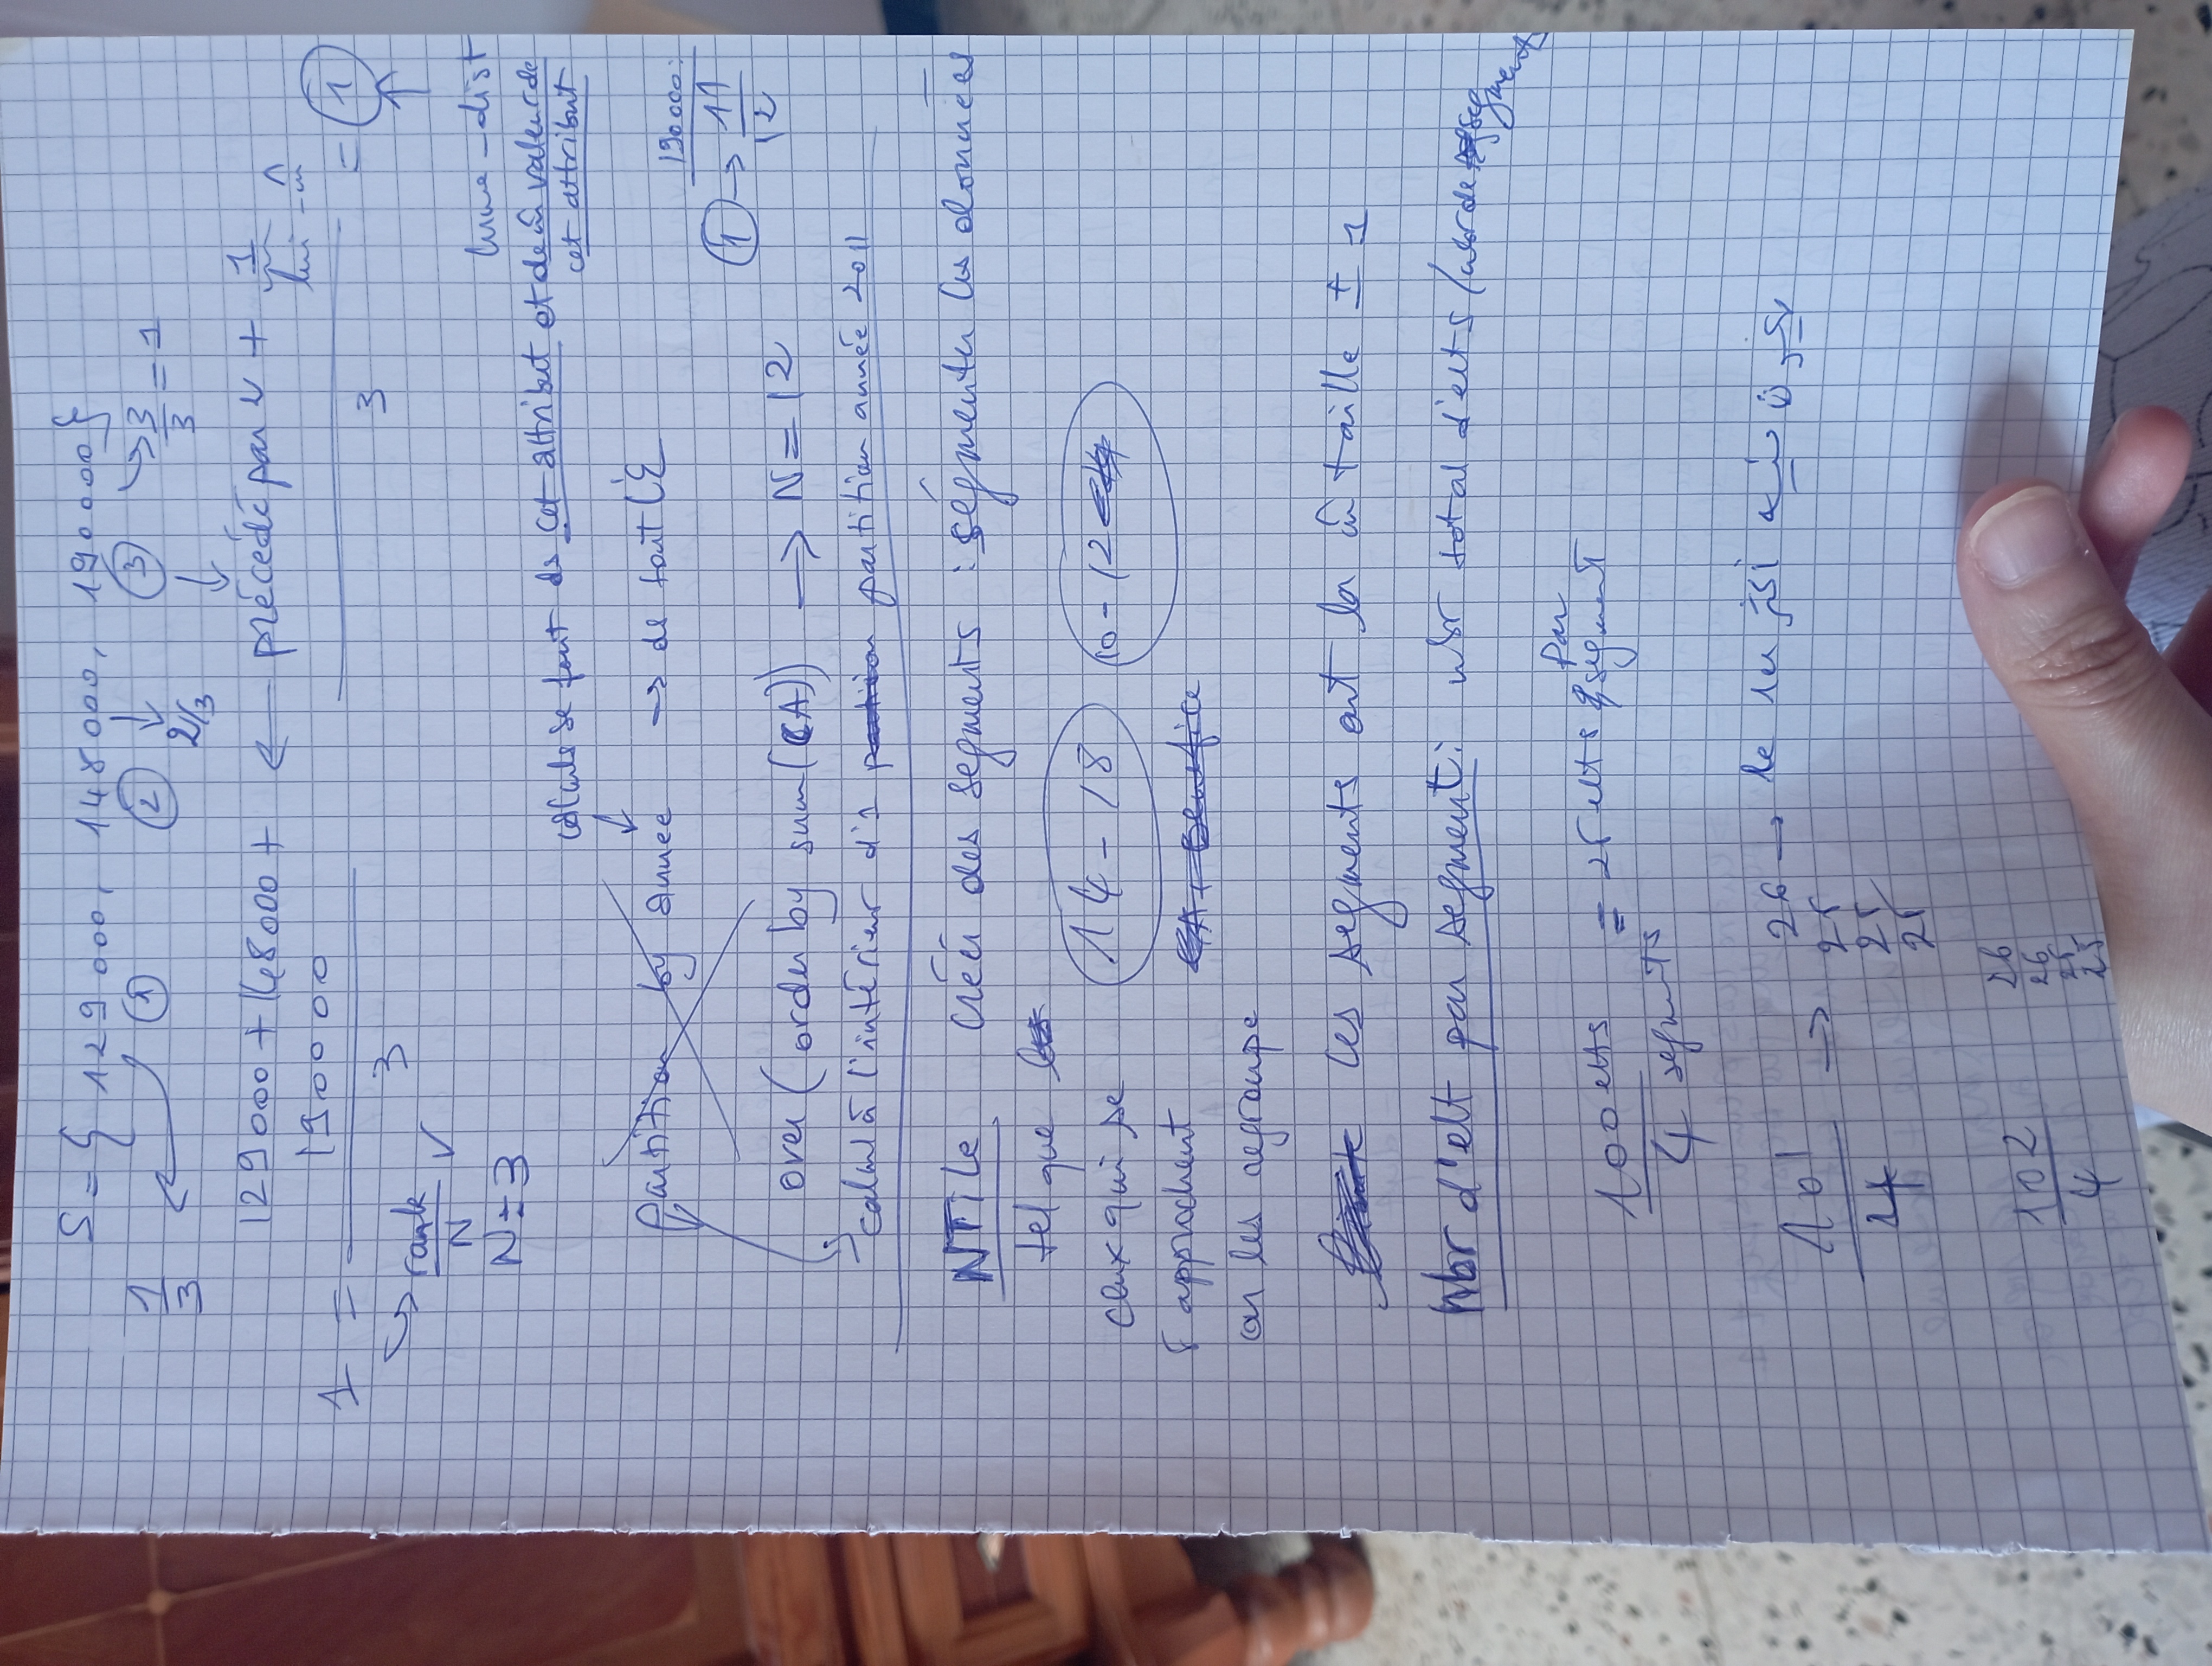 S = { 129 000, 148 000, 190 000 }
1/3 ① ② 2/3 ③ 3/3 = 1
129 000 + 148 000 + 190 000 ← précédé par v + 1
lui - m̂
1 = 3 3 = ①
rank/N ✓
N = 3
Cume - dist
calculs se font ds cet attribut et de m̂ valeur de
cet attribut
partition by annee → ds tout l'E
190 000 :
① → 11/12
over ( order by sum(CA)) → N = 12
calcul à l'intérieur d'1 partition année 2011
NTile créer des segments : ségmenter les données
tel que
ceux qui se 14 - 18 10 - 12
rapprochent CA, Benefice
on les regroupe
les segments ont la m̂ taille ± 1
Nbr d'elt par segment : nbr total d'elts / nbr de segments
100 elts / 4 segments = 25 elts par segment
101/4 → 26 → le 1er
25
25
25
102/4 26
26
25
25